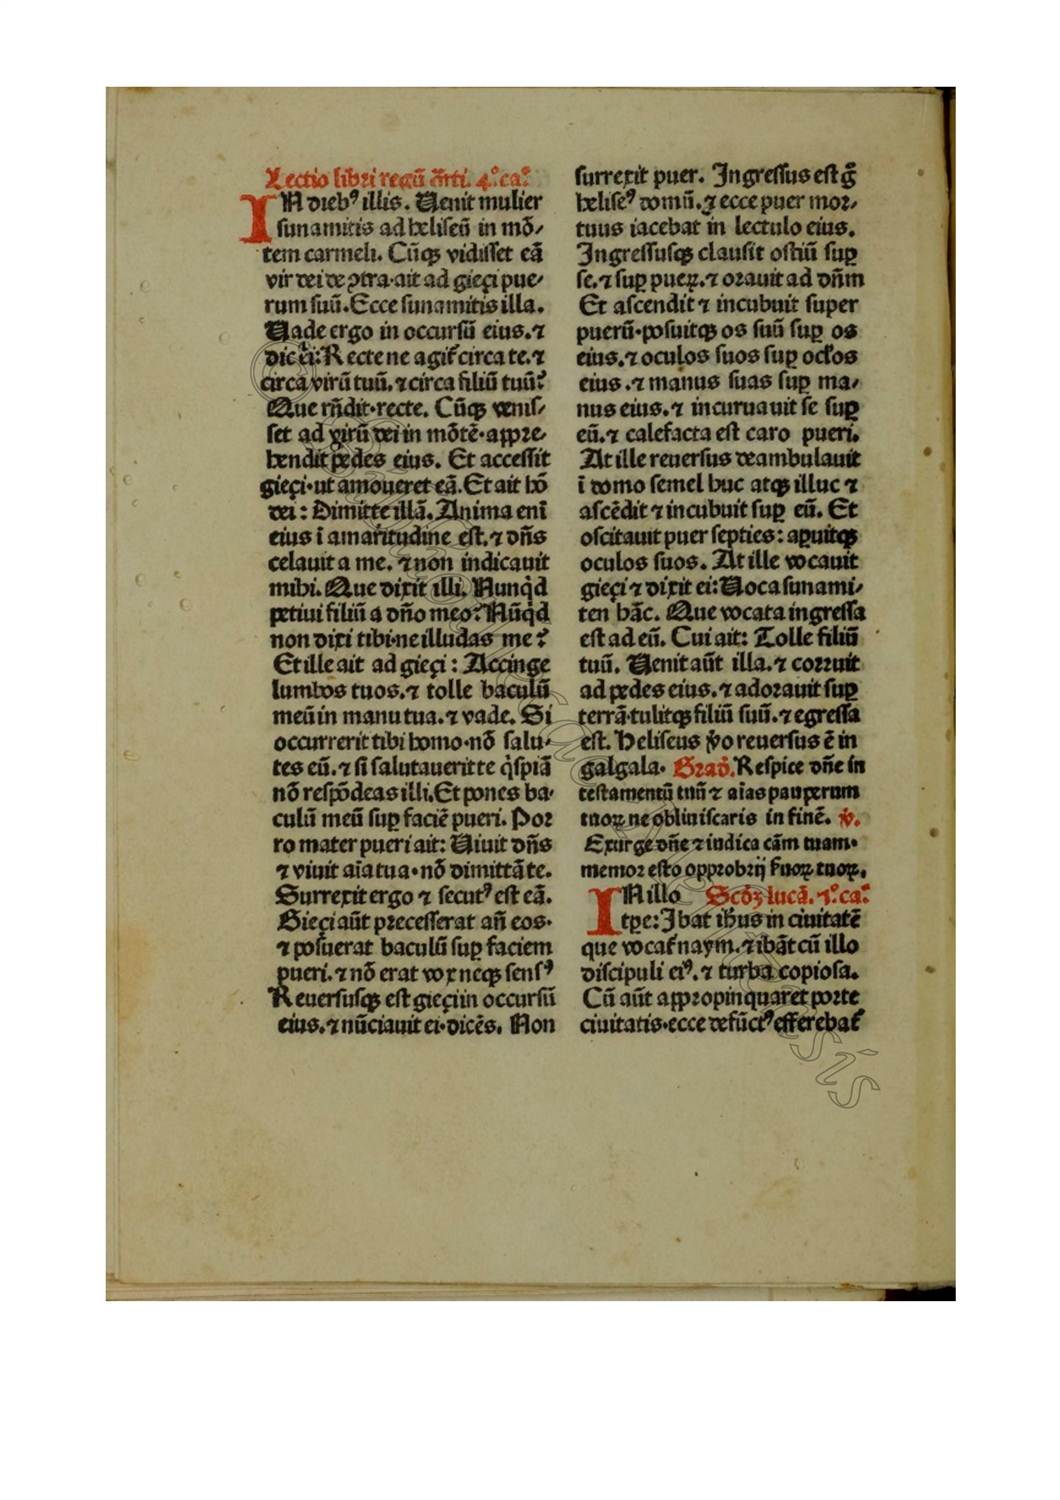 Lectio libri regū q̄rti. 4.º ca.º
IN dieb⁹ illis. Uenit mulier
sunamitis ad heliseū in mō⸗
tem carmeli. Cūqꝫ vidisset eā
vir dei de ꝯtra·ait ad gieçi pue⸗
rum suū·Ecce sunamitis illa.
Uade ergo in occursū eius.⁊
dic ei:Recte ne agit᷑ circa te.⁊
circa virū tuū.⁊ circa filiū tuū?
Que rñdit·recte. Cūqꝫ venis⸗
set ad virū dei in mōtē·appre⸗
hendit pedes eius. Et accessit
gieçi·ut amoueret eā.Et ait hō
dei: Dimitte illā. Anima eni̅
eius i̅ amaritudine est.⁊ dñs
celauit a me.⁊ non indicauit
mihi. Que dixit illi. Nunqͥd
petiui filiū a dño meo? Nūqͥd
non dixi tibi·ne illudas me?
Et ille ait ad gieçi: Accinge
lumbos tuos.⁊ tolle baculū
meū in manu tua.⁊ vade. Si
occurrerit tibi homo·nō salu⸗
tes eū.⁊ si salutauerit te qͥspiā
nō respōdeas illi. Et pones ba⸗
culū meū suꝑ faciē pueri. Por
ro mater pueri ait: Uiuit dñs
⁊ viuit aīa tua·nō dimittā te.
Surrexit ergo ⁊ secut⁹ est eā.
Gieçi aūt precesserat añ eos·
⁊ posuerat baculū suꝑ faciem
pueri.⁊ nō erat vox neqꝫ sens⁹
Reuersusqꝫ est gieçi in occursū
eius.⁊ nūciauit ei·dicēs. Non
surrexit puer. Ingressus est g̊
helise⁹ domū.⁊ ecce puer mor⸗
tuus iacebat in lectulo eius.
Ingressusqꝫ clausit ostiū suꝑ
se.⁊ suꝑ pueꝝ.⁊ orauit ad dñm
Et ascendit ⁊ incubuit super
puerū·posuitqꝫ os suū suꝑ os
eius.⁊ oculos suos suꝑ oclos
eius.⁊ manus suas suꝑ ma⸗
nus eius.⁊ incuruauit se suꝑ
eū.⁊ calefacta est caro pueri.
At ille reuersus deambulauit
i̅ domo semel huc atqꝫ illuc ⁊
ascēdit ⁊ incubuit suꝑ eū. Et
oscitauit puer septies: aꝑuitqꝫ
oculos suos. At ille vocauit
gieçi ⁊ dixit ei:Uoca sunami⸗
ten hāc. Que vocata ingressa
est ad eū. Cui ait: Tolle filiū
tuū. Uenit aūt illa.⁊ corruit
ad pedes eius.⁊ adorauit suꝑ
terrā·tulitqꝫ filiū suū.⁊ egressa
est. Heliseus v̊o reuersus ē in
galgala· Grad̄. Respice dñe in
testamentū tuū ⁊ aīas pauperum
tuoꝝ ne obliuiscaris in finē. ℣.
Exurge dñe ⁊ iudica cām tuam·
memor esto opprobrij s̄uoꝝ tuoꝝ.
IN illo Scdꝫ lucā. 7.º ca.º
tp̄e: Ibat ihūs in ciuitatē
que vocat᷑ naym.⁊ ibāt cū illo
discipuli ei⁹.⁊ turba copiosa.
Cū aūt appropinquaret porte
ciuitatis·ecce defūct⁹ efferebat᷑